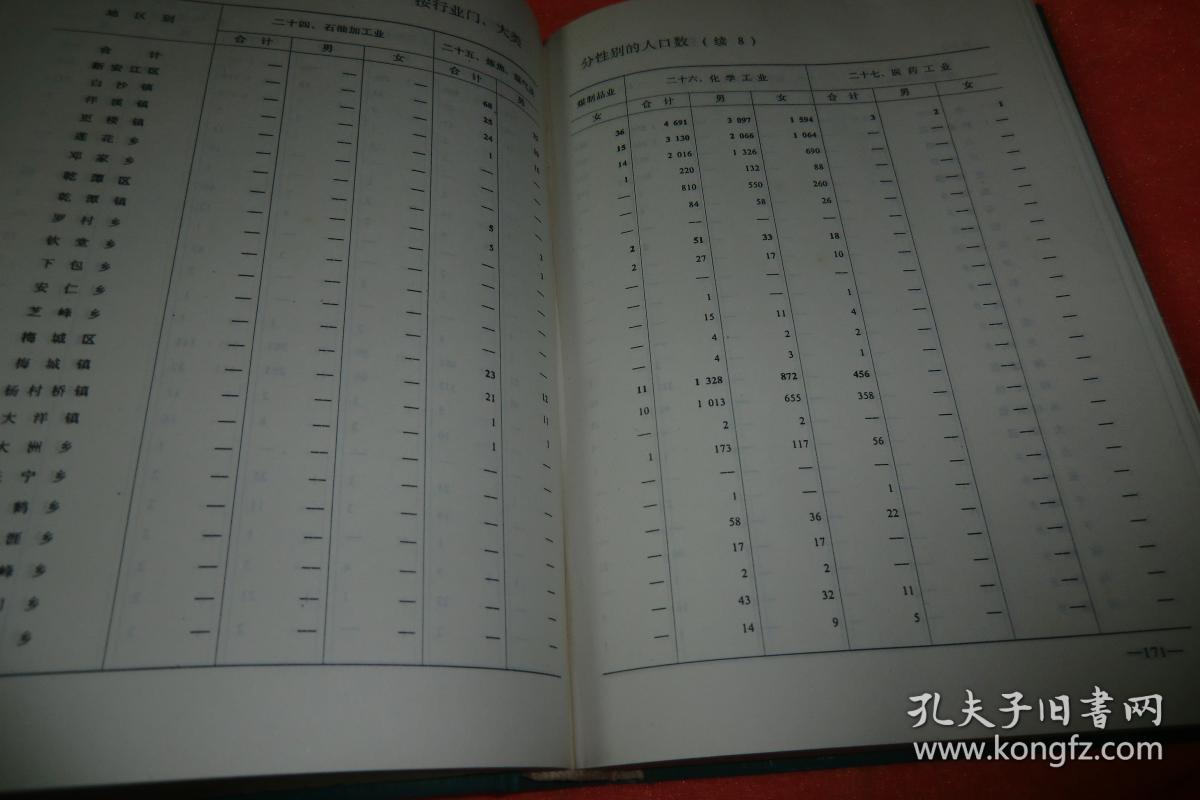 按行业门、大类
地区别 二十四、石油加工业
合计 男 女 合计 男
合计 — — — 68
新安江区 — — — 25
白沙镇 — — — 24
洋溪镇 — — — 1
更楼镇 — — — —
莲花乡 — — — —
邓家乡 — — — —
乾潭区 — — — 5
乾潭镇 — — — 3
罗村乡 — — — —
钦堂乡 — — — —
下包乡 — — — —
安仁乡 — — — —
芝峰乡 — — — —
梅城区 — — — 23 12
梅城镇 — — — 21 11
杨村桥镇 — — — 1 1
大洋镇 — — — 1 —
大洲乡 — — — — —
宁乡 — — — — —
鹤乡 — — — — —
乡 — — — — —
峰乡 — — — — —
乡 — — — — —
乡 — — — — —
分性别的人口数(续8)
煤制品业 二十六、化学工业 二十七、医药工业
女 合计 男 女 合计 男 女
36 4 691 3 097 1 594 3 2 1
15 3 130 2 066 1 064 — — —
14 2 016 1 326 690 — — —
1 220 132 88 — — —
— 810 550 260 — — —
— 84 58 26 — — —
— — — — — — —
2 51 33 18 — — —
2 27 17 10 — — —
— — — — — — —
— 1 — 1 — — —
— 15 11 4 — — —
— 4 2 2 — — —
— 4 3 1 — — —
11 1 328 872 456 — — —
10 1 013 655 358 — — —
— 2 2 — — — —
1 173 117 56 — — —
— — — — — — —
— 1 — 1 — — —
— 58 36 22 — — —
— 17 17 — — — —
— 2 2 — — — —
— 43 32 11 — — —
— 14 9 5 — — —
—171—
孔夫子旧书网
www.kongfz.com